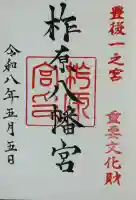 豊後一之宮
重要文化財
柞原八幡宮
令和八年五月五日